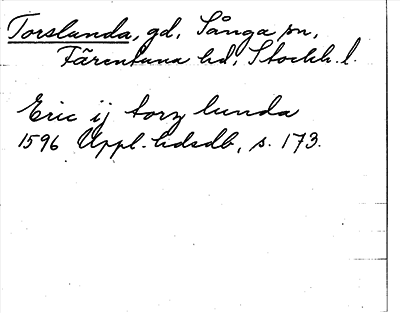 Torslunda, gd, Sånga sn,
Färentuna hd, Stockh. l.
Eric ij torz lunda
1596 Uppl. hdsdb, s. 173.